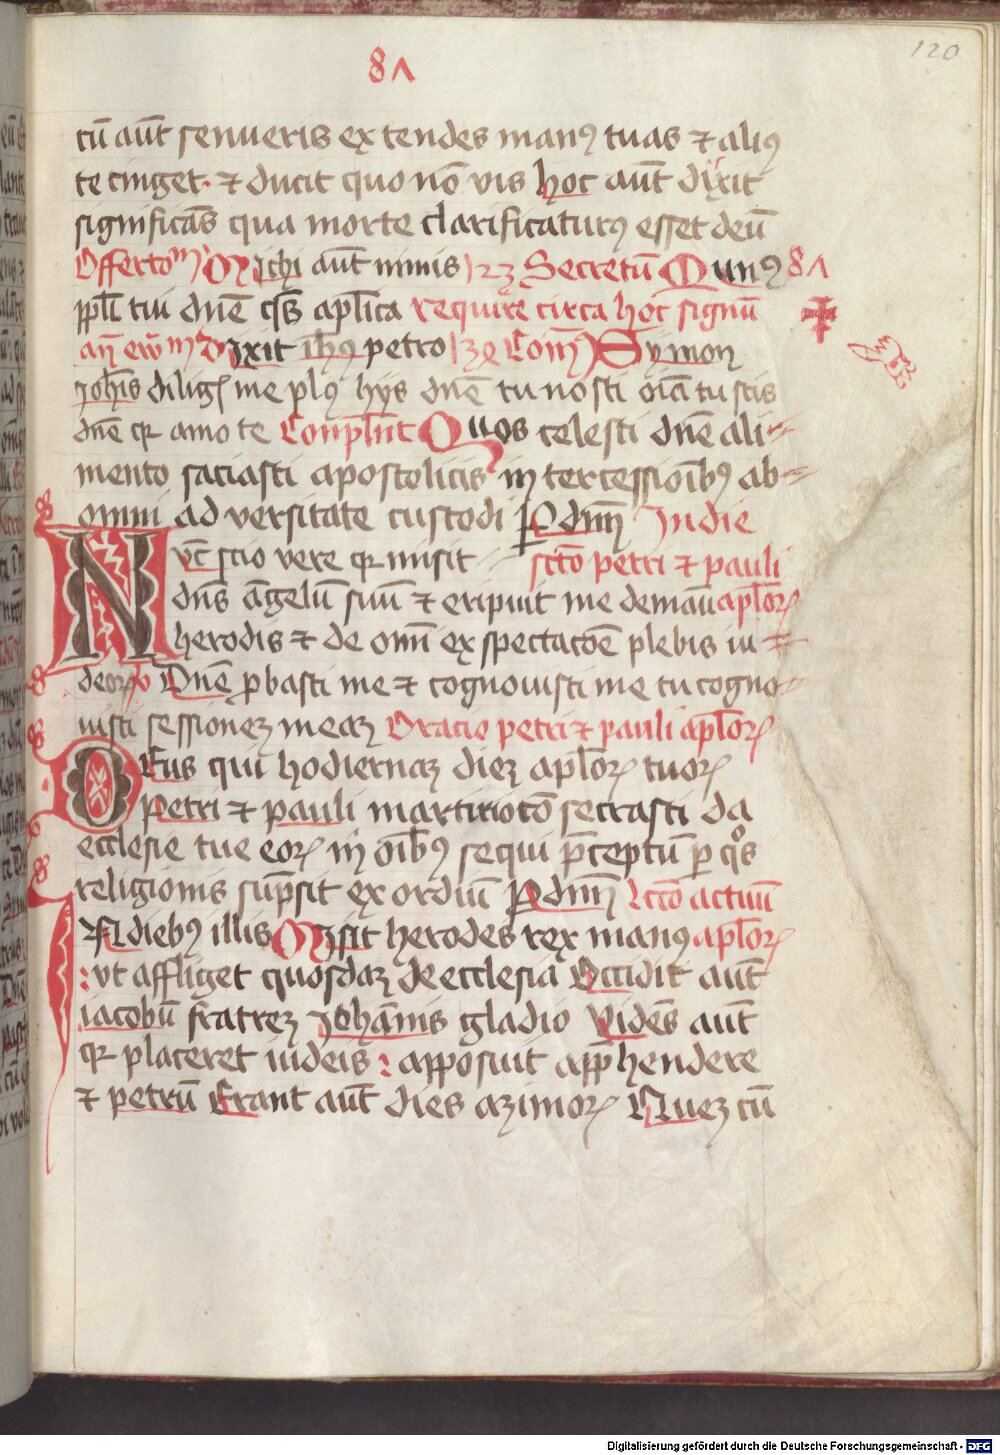 120
8Λ
cū aūt senueris extendes man9 tuas ⁊ ali9
te cinget· ⁊ ducit quo nō vis hoc aūt dixit
significās qua morte clarificatur9 esset deū
Offertoᵐ Michi aūt nimis Secretū Mun9 8Λ
ppl̄i tui dn̄e qs̄ apl̄ica require circa hoc signū
Dixit ih̄us petro Com̄ Symon
Joh̄is dilig me pl9 hijs dn̄e tu nosti oīa tu scis
dn̄e qr amo te Conpl̄nt Quos celesti dn̄e ali-
mento saciasti apostolicis intercessiōib9 ab-
omni adversitate custodi P dnm̄ In die
Vc̄ scio vere qr misit sctō petri ⁊ pauli
dn̄s āgelū suū ⁊ eripuit me de manu apl̄oꝝ
herodis ⁊ de om̄i exspectacōe plebis iu-
deoꝝ Dn̄e ꝓbasti me ⁊ cognouisti me tu cogno-
uisti sessionez meaz Oracio petri ⁊ pauli apl̄oꝝ
DEus qui hodiernaz diez apl̄oꝝ tuoꝝ
Petri ⁊ pauli martirio cōsecrasti da
ecclesie tue eoꝝ in oīb9 sequi p̄ceptū ꝑ qͦs
religionis sup̄sit exordiū P dnm̄ Lccō actuū
IN dieb9 illis Mīsit herodes rex man9 apl̄oꝝ
: vt affliget quosdaz de ecclesia Occidit aūt
iacobū fratrez Johānis gladio Vidēs aūt
qr placeret iudeis : apposuit app̄hendere
⁊ petrū Erant aūt dies azimoꝝ Quez cū
Digitalisierung gefördert durch die Deutsche Forschungsgemeinschaft - DFG